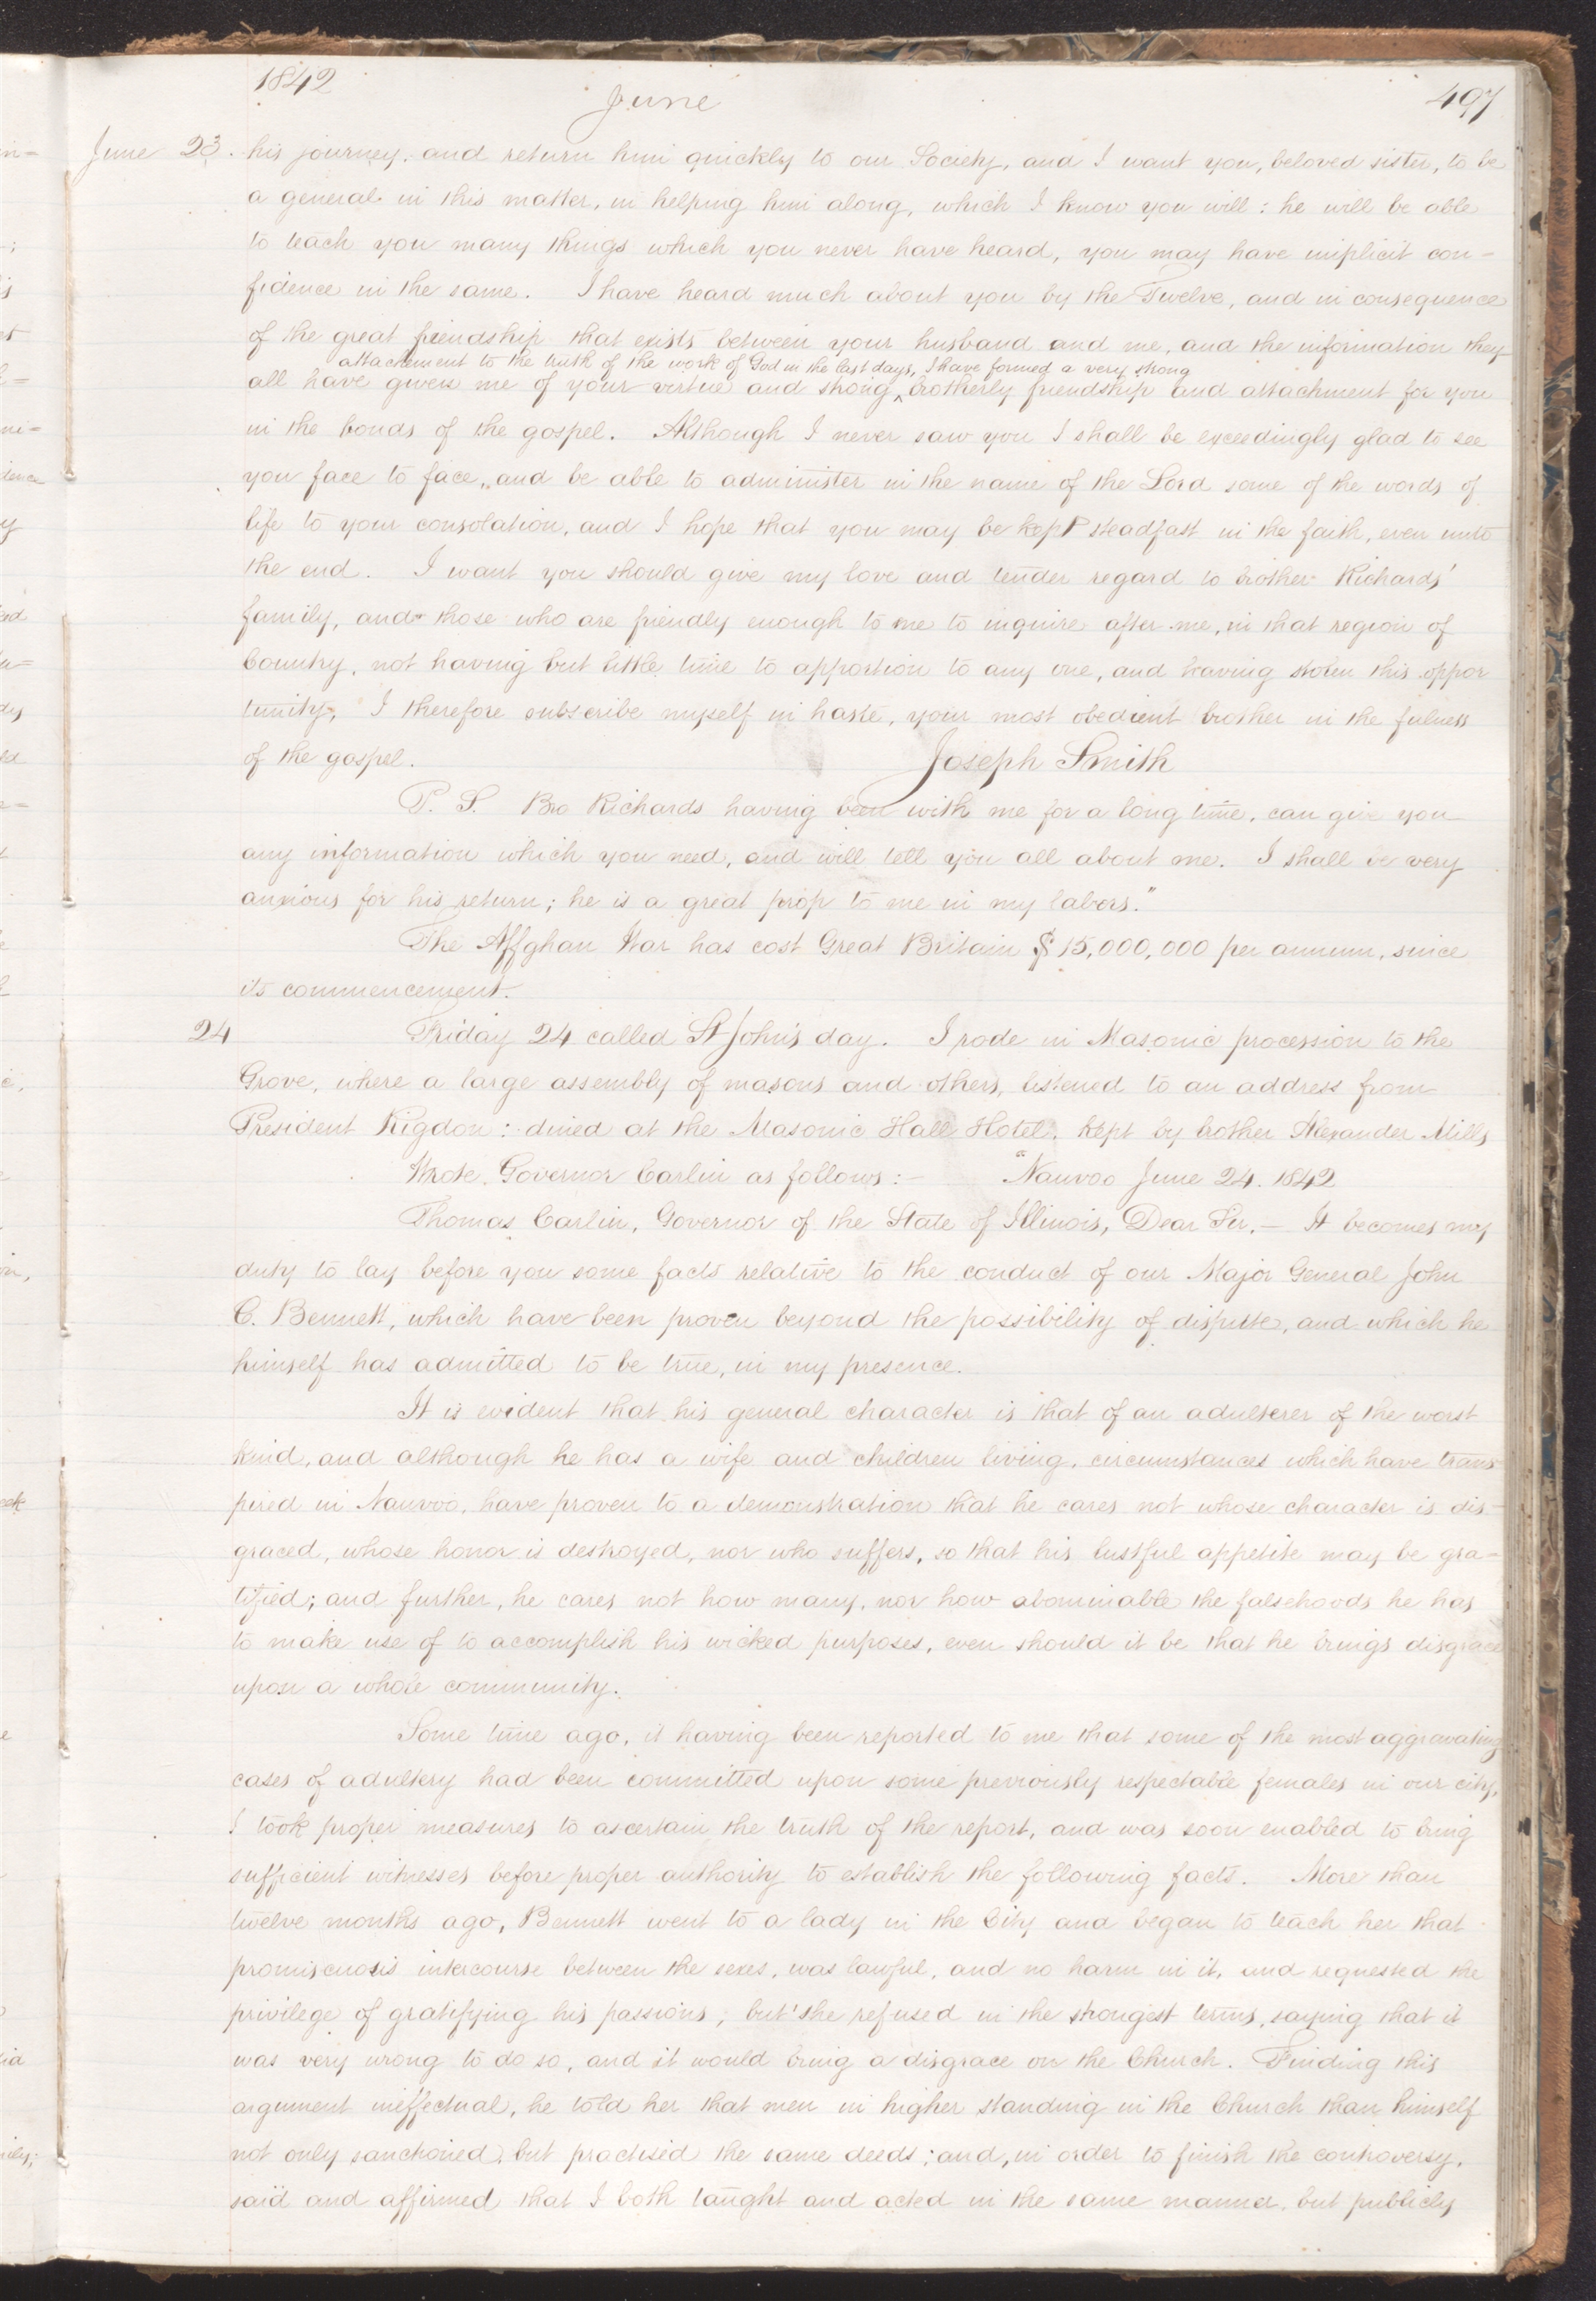 1842
June
497
June 23. his journey, and return him quickly to our Society, and I want you, beloved sister, to be
a general in this matter, in helping him along, which I know you will: he will be able
to teach you many things which you never have heard, you may have implicit con-
fidence in the same. I have heard much about you by the Twelve, and in consequence
of the great friendship that exists between your husband and me, and the information they
attachment to the truth of the work of God in the last days, I have formed a very strong
all have given me of your virtue and strong ^ brotherly friendship and attachment for you
in the bonds of the gospel. Although I never saw you I shall be exceedingly glad to see
you face to face, and be able to administer in the name of the Lord some of the words of
life to your consolation, and I hope that you may be kept steadfast in the faith, even unto
the end. I want you should give my love and tender regard to brother Richards'
family, and those who are friendly enough to me to inquire after me, in that region of
Country, not having but little time to apportion to any one, and having stolen this oppor
tunity, I therefore subscribe myself in haste, your most obedient brother in the fulness
of the gospel. Joseph Smith
P. S. Bro Richards having been with me for a long time, can give you
any information which you need, and will tell you all about me. I shall be very
anxious for his return; he is a great prop to me in my labors."
The Affghan War has cost Great Britain $15,000,000 per annum, since
its commencement.
24 Friday 24 called St John's day. I rode in Masonic procession to the
Grove, where a large assembly of masons and others, listened to an address from
President Rigdon: dined at the Masonic Hall Hotel, kept by brother Alexander Mills
Wrote Governor Carlin as follows:— "Nauvoo June 24. 1842
Thomas Carlin, Governor of the State of Illinois, Dear Sir,— It becomes my
duty to lay before you some facts relative to the conduct of our Major General John
C. Bennett, which have been proven beyond the possibility of dispute, and which he
himself has admitted to be true, in my presence.
It is evident that his general character is that of an adulterer of the worst
kind, and although he has a wife and children living, circumstances which have trans-
pired in Nauvoo, have proven to a demonstration that he cares not whose character is dis-
graced, whose honor is destroyed, nor who suffers, so that his lustful appetite may be gra-
tified; and further, he cares not how many, nor how abominable the falsehoods he has
to make use of to accomplish his wicked purposes, even should it be that he brings disgrace
upon a whole community.
Some time ago, it having been reported to me that some of the most aggravating
cases of adultery had been committed upon some previously respectable females in our city,
I took proper measures to ascertain the truth of the report, and was soon enabled to bring
sufficient witnesses before proper authority to establish the following facts. More than
twelve months ago, Bennett went to a lady in the City and began to teach her that
promiscuosis intercourse between the sexes, was lawful, and no harm in it, and requested the
privilege of gratifying his passions; but she refused in the strongest terms, saying that it
was very wrong to do so, and it would bring a disgrace on the Church. Finding this
argument ineffectual, he told her that men in higher standing in the Church than himself
not only sanctioned, but practised the same deeds; and, in order to finish the controversy,
said and affirmed that I both taught and acted in the same manner, but publicly